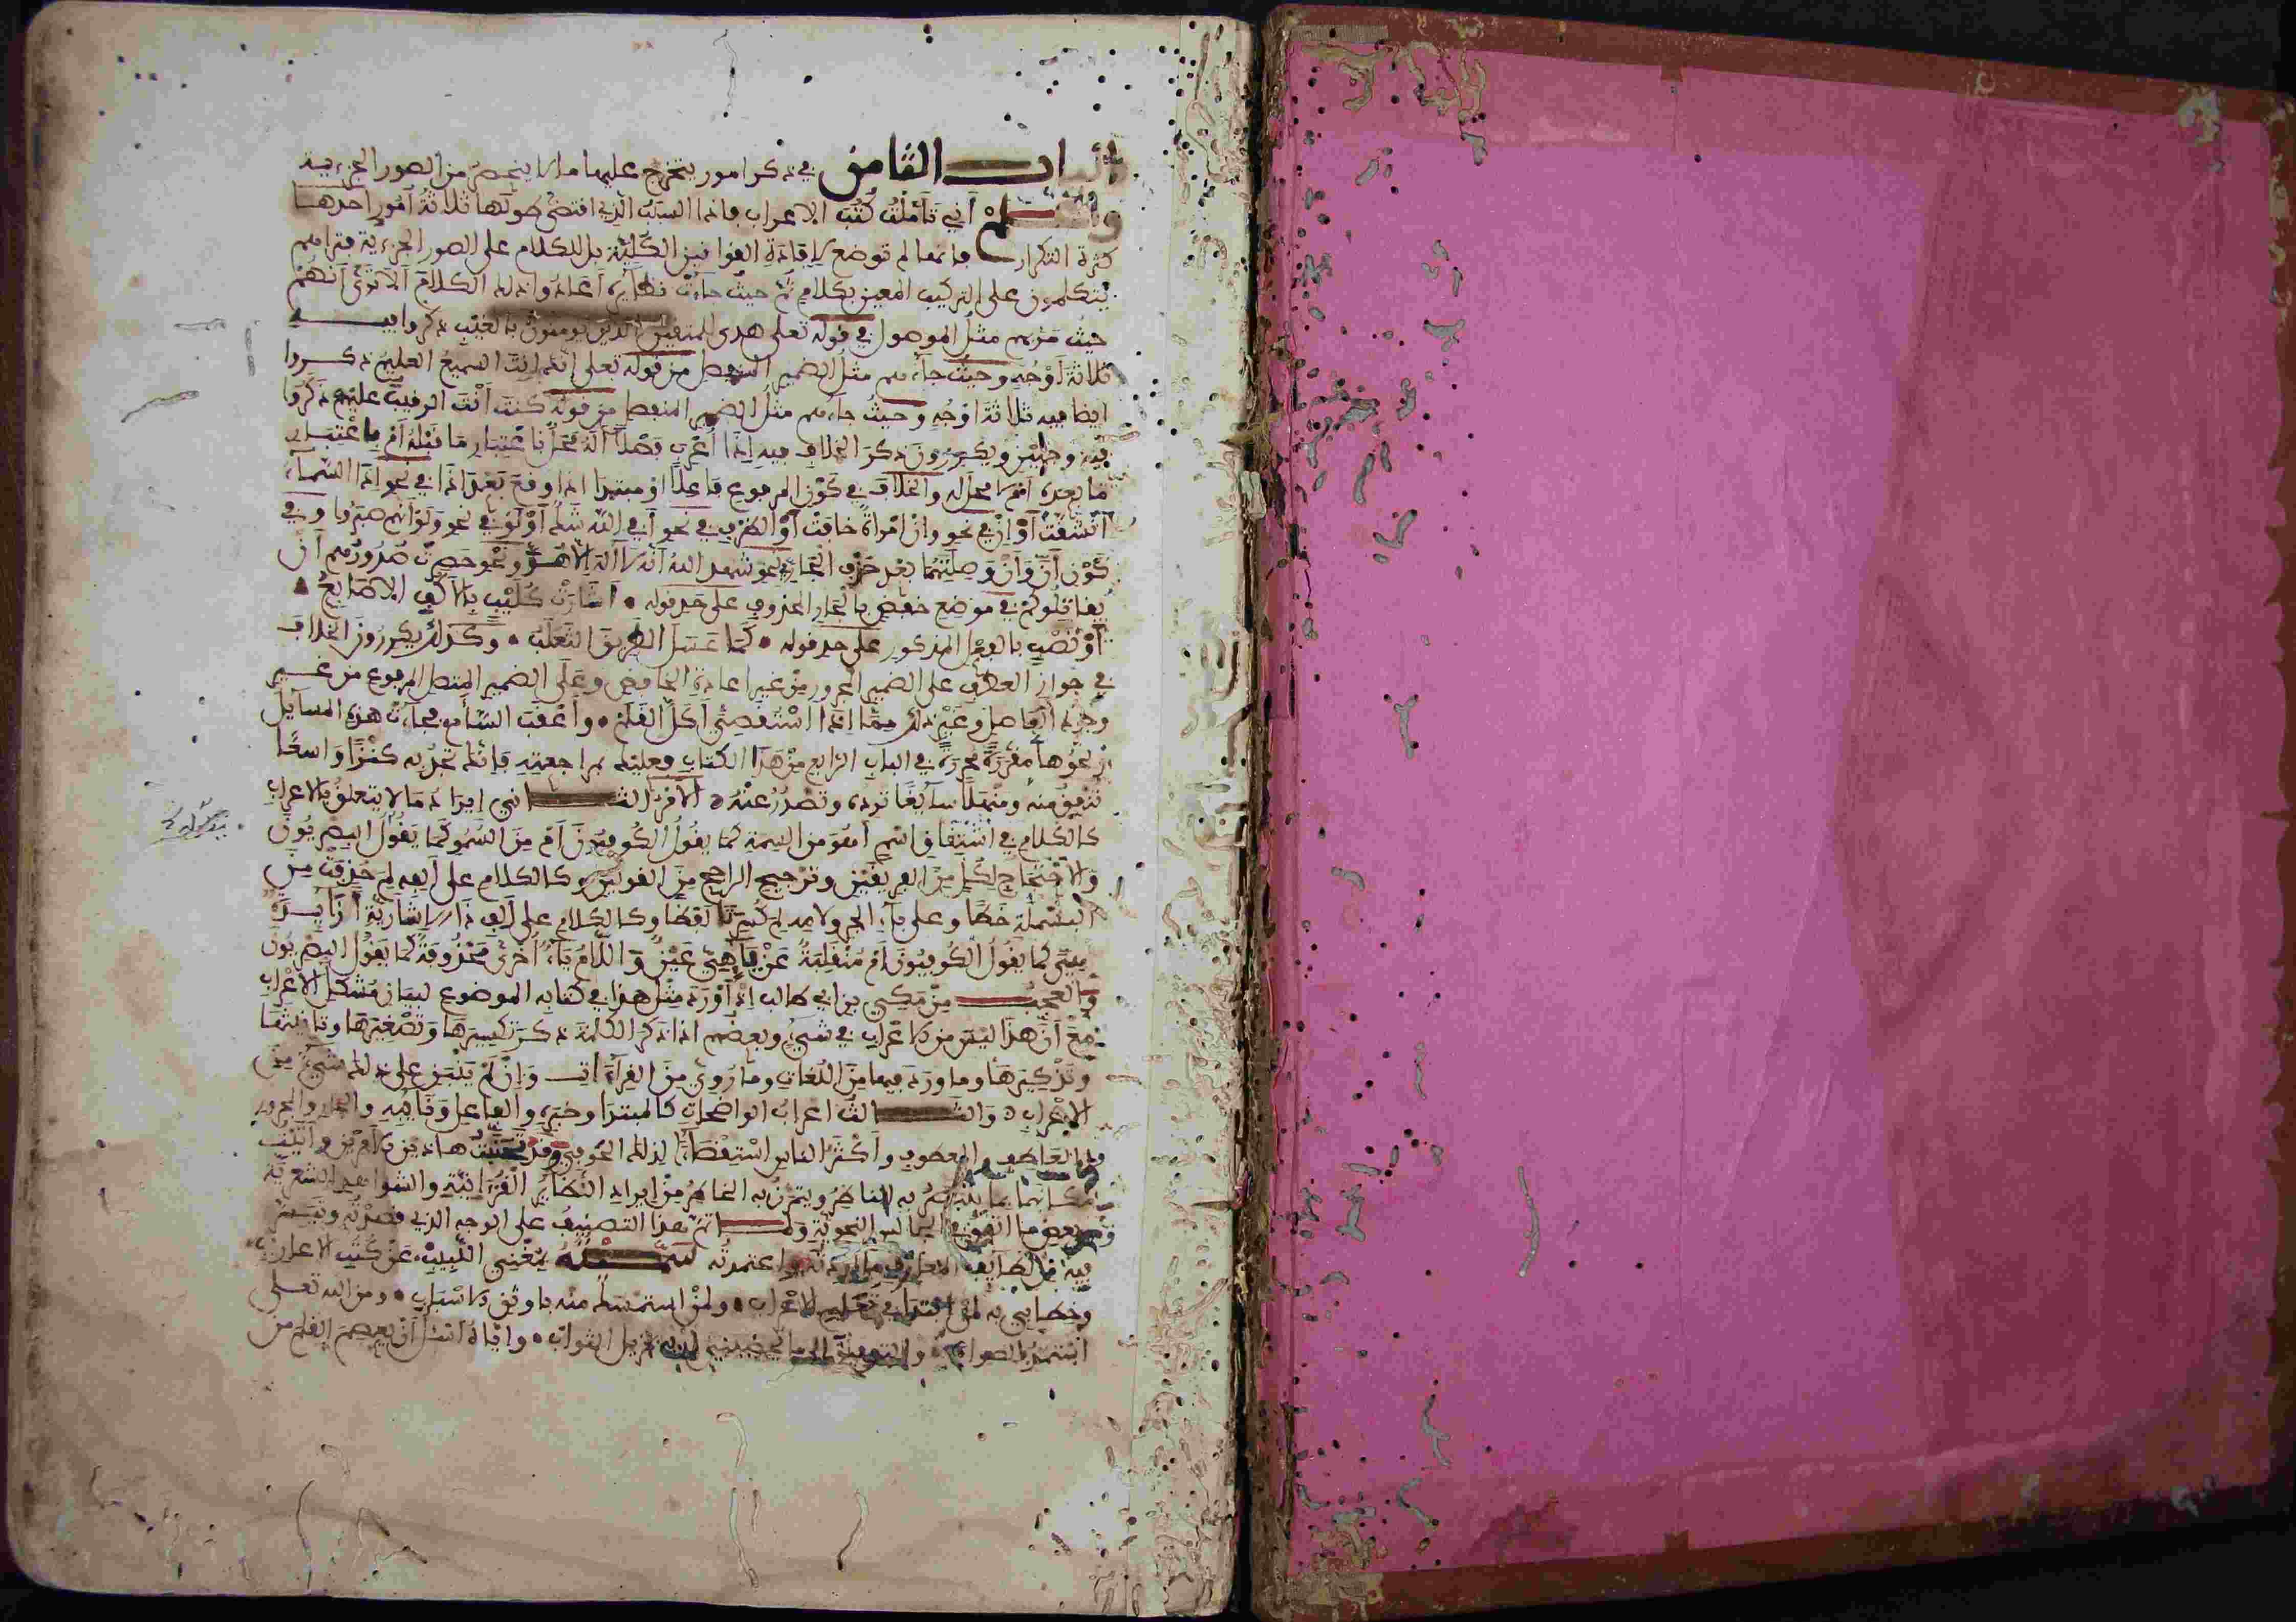 الباب الثامن في ذكر امور يتخرج عليها ما لا ينحصر من الصور الجزءية
واعلم أني تأملت كتب الاعراب فاذا السبب الذي اقتضى طولها ثلاثة أمور احدها
كثرة التكرار فانها لم توضع لإفادة القوانين الكلية بل للكلام على الصور الجزءية فتراهم
يتكلمون على التركيب المعين بكلام ثم حيث جاءت نظايره أعادوا ذلك الكلام ألا ترى أنهم
حيث مر بهم مثل الموصول في قوله تعلى هدى للمتقين الذين يومنون بالغيب ذكروا فيه
ثلاثة أوجه وحيث جاءهم مثل الضمير المنفصل من قوله تعلى إنك أنت السميع العليم ذكروا
ايضا فيه ثلاثة اوجه وحيث جاءهم مثل الضمير المنفصل من قوله كنت أنت الرقيب عليهم ذكروا
فيه وجهين ويكررون ذكر الخلاف فيه إذا أعرب فصلا أله محل باعتبار ما قبله أم باعتبار
ما بعده أم لا محل له والخلاف في كون المرفوع فاعلا او مبتدا اذا وقع بعد اذا في نحو إذا السماء
انشقت أو إن في نحو وإن امرأة خافت أو الظرف في نحو أفي الله شك أو لو في نحو ولو أنهم صبروا وفي
كون أن وأن وصلتهما بعد حذف الجار في نحو شهد الله أنه لا اله إلا هو ونحو حصرت صدورهم أن
يقاتلوكم في موضع خفض بالجار المحذوف على حد قوله • أشارت كليب بالأكف الاصابع
أو نصب بالفعل المذكور على حد قوله • كما عسل الطريق الثعلب • وكذلك يكررون الخلاف
في جواز العطف على الضمير المجرور من غير اعادة الخافض وعلى الضمير المتصل المرفوع من غير
وجود الفاصل وغير ذلك مما إذا استقصي أكل القلم • وأعقب السأم فجاءت هذه المسايل
ونحوها مقررة محررة في الباب الرابع من هذا الكتاب فعليك بمراجعته فإنك تجد به كنزا واسعا
تنفق منه ومنهلا سايغا ترده وتصدر عنه الأمر الثاني إيراد ما لا يتعلق بالاعراب
كالكلام في اشتقاق اسم أهو من السمة كما يقول الكوفيون أم من السمو كما يقول البصريون
والاحتجاج لكل من الفريقين وترجيح الراجح من القولين وكالكلام على ألفه لم حذفت من
البسملة خطا وعلى باء الجر ولامه لم كسرتا لفظا وكالكلام على ألف ذا الإشارية أزايدة
هي كما يقول الكوفيون أم منقلبة عن ياء هي عين واللام ياء أخرى محذوفة كما يقول البصريون
والعجب من مكي بن ابي طالب إذ أورد مثل هذا في كتابه الموضوع لبيان مشكل الاعراب
مع أن هذا ليس من الاعراب في شيء وبعضهم اذا ذكر الكلمة ذكر تكسيرها وتصغيرها وتانيثها
وتذكيرها وما ورد فيها من اللغات وما روي من القراءات وإن لم ينبن على ذلك شيء من
الاعراب والثالث اعراب الواضحات كالمبتدا وخبره والفاعل ونايبه والجار والمجرور
والعاطف والمعطوف وأكثر الناس استقصاء لذلك الحوفي وقد تجنبت هاذين الأمرين وأتيت
مكانهما بما يتبصر به الناظر ويتمرن به الخاطر من إيراد النظاير القرآنية والشواهد الشعرية
وبعض ما اتفق في المجالس النحوية ولما تم هذا التصنيف على الوجه الذي قصدته وتيسر
فيه من لطايف المعارف ما أردته واعتمدته سميته بمغني اللبيب • عن كتب الاعاريب •
وخطابي به لمن ابتدأ في تعلم الاعراب • ولمن استمسك منه باوثق الاسباب • ومن الله تعلى
استمد الصواب • والتوفيق الى ما يحظيني لديه بجزيل الثواب • واياه اسئل أن يعصم القلم من